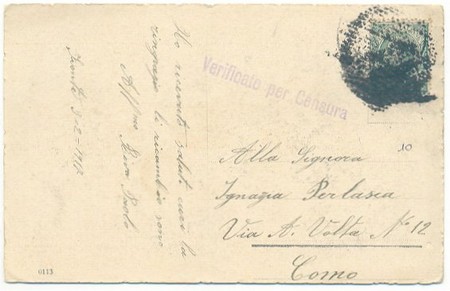 Ho ricevuto saluti così la
ringrazio li ricambio sono
Aff.mo Riva Paolo
Fronte 9-2-1917
Verificato per Censura
10
Alla Signora
Ignazia Perlasca
Via A. Volta No 12
Como
0113